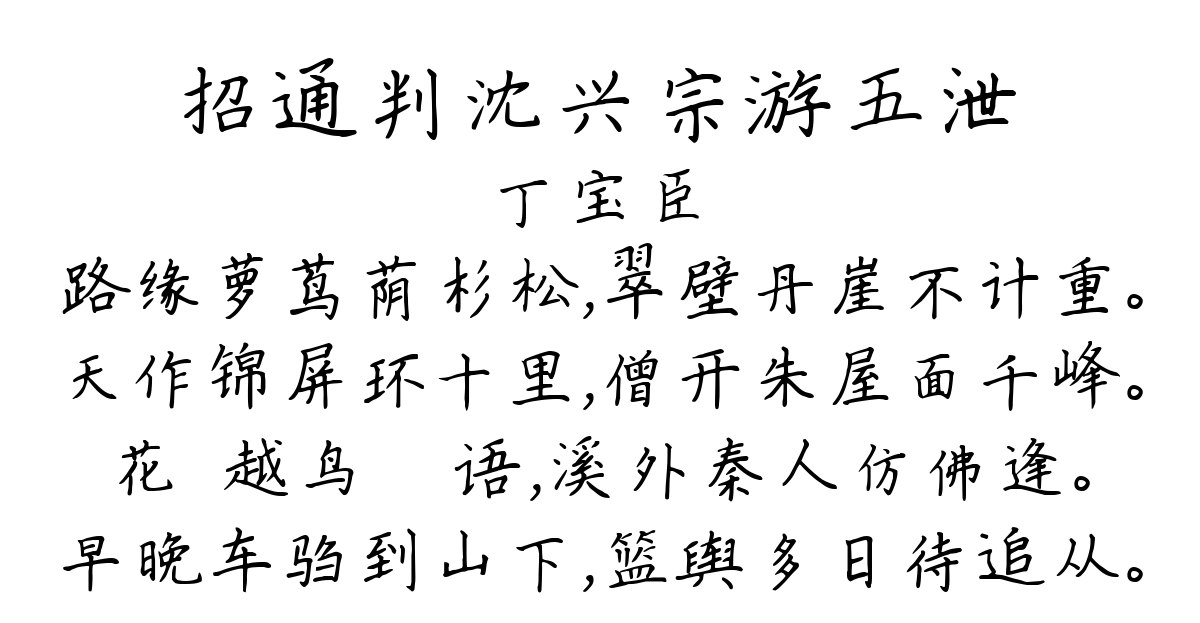 招通判沈兴宗游五泄
丁宝臣
路缘萝茑荫杉松,翠壁丹崖不计重。
天作锦屏环十里,僧开朱屋面千峰。
花 越鸟 语,溪外秦人仿佛逢。
早晚车驺到山下,篮舆多日待追从。